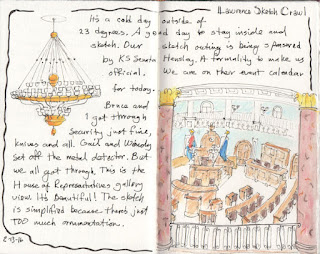 Lawrence Sketch Crawl
It's a cold day outside of
23 degrees. A good day to stay inside and
sketch. Our sketch outing is being sponsored
by KS Senator Hensley. A formality to make us
official. We are on their event calendar
for today.
Bruce and
I got through
Security just fine,
knives and all. Gail and
Set off the metal detector. But
we all got through. This is the
House of Representatives gallery
view. It's beautiful! The sketch
is simplified because there's just
TOO much ornamentation.